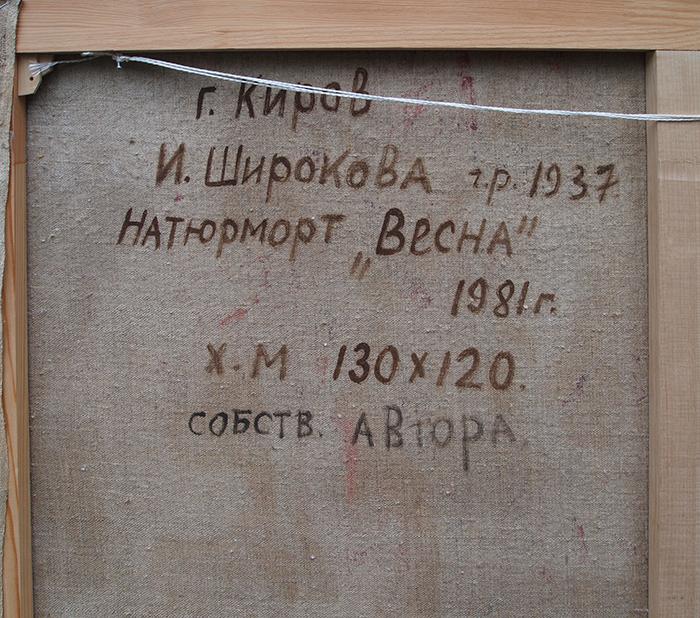 г. Киров
И. Широкова г.р. 1937
Натюрморт „Весна”
1981г.
х.м 130х120.
собств. автора.